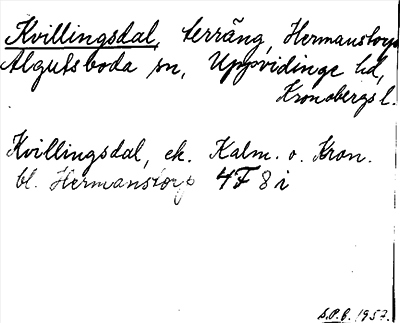 Kvillingsdal, terräng, Hermanstorp
Algutsboda sn, Uppvidinge hd,
Kronobergs l.
Kvillingsdal, ek. Kalm. o. Kron.
bl. Hermanstorp 4F 8i
S.P.B. 1957.